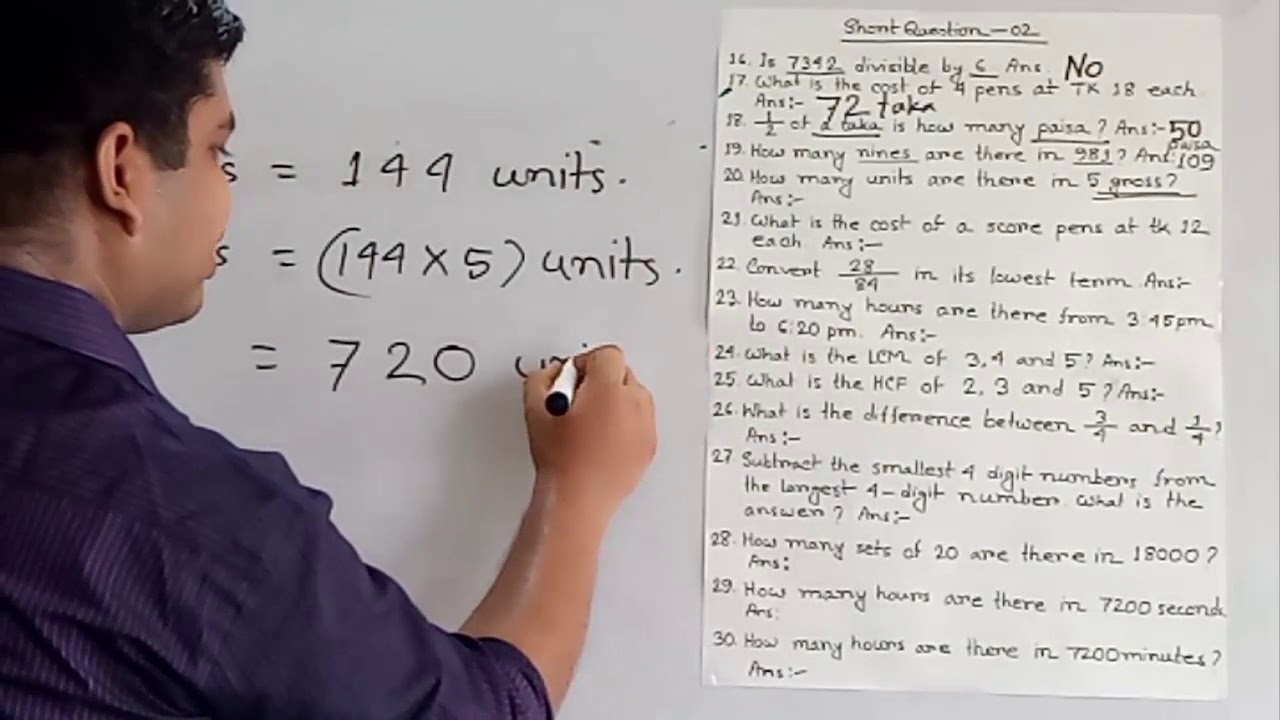 s = 144 units.
s = (144 × 5) units.
= 720 uni
Short Question - 02
16. Is 7342 divisible by 6 Ans. NO
17. What is the cost of 4 pens at TK 18 each
Ans:- 72 taka
18. 1/2 of a taka is how many paisa? Ans:- 50 paisa
19. How many nines are there in 981? Ans: 109
20. How many units are there in 5 gross?
Ans:-
21. What is the cost of a score pens at tk 12
each Ans:-
22 Convert 28/84 in its lowest term Ans:-
23. How many hours are there from 3:45pm
to 6:20 pm. Ans:-
24. What is the LCM of 3,4 and 5? Ans:-
25. What is the HCF of 2, 3 and 5? Ans:-
26. What is the difference between 3/4 and 1/4?
Ans:-
27 Subtract the smallest 4 digit numbers from
the longest 4-digit number. What is the
answer? Ans:-
28. How many sets of 20 are there in 18000?
Ans:
29. How many hours are there in 7200 seconds
Ans:
30. How many hours are there in 7200 minutes?
Ans:-